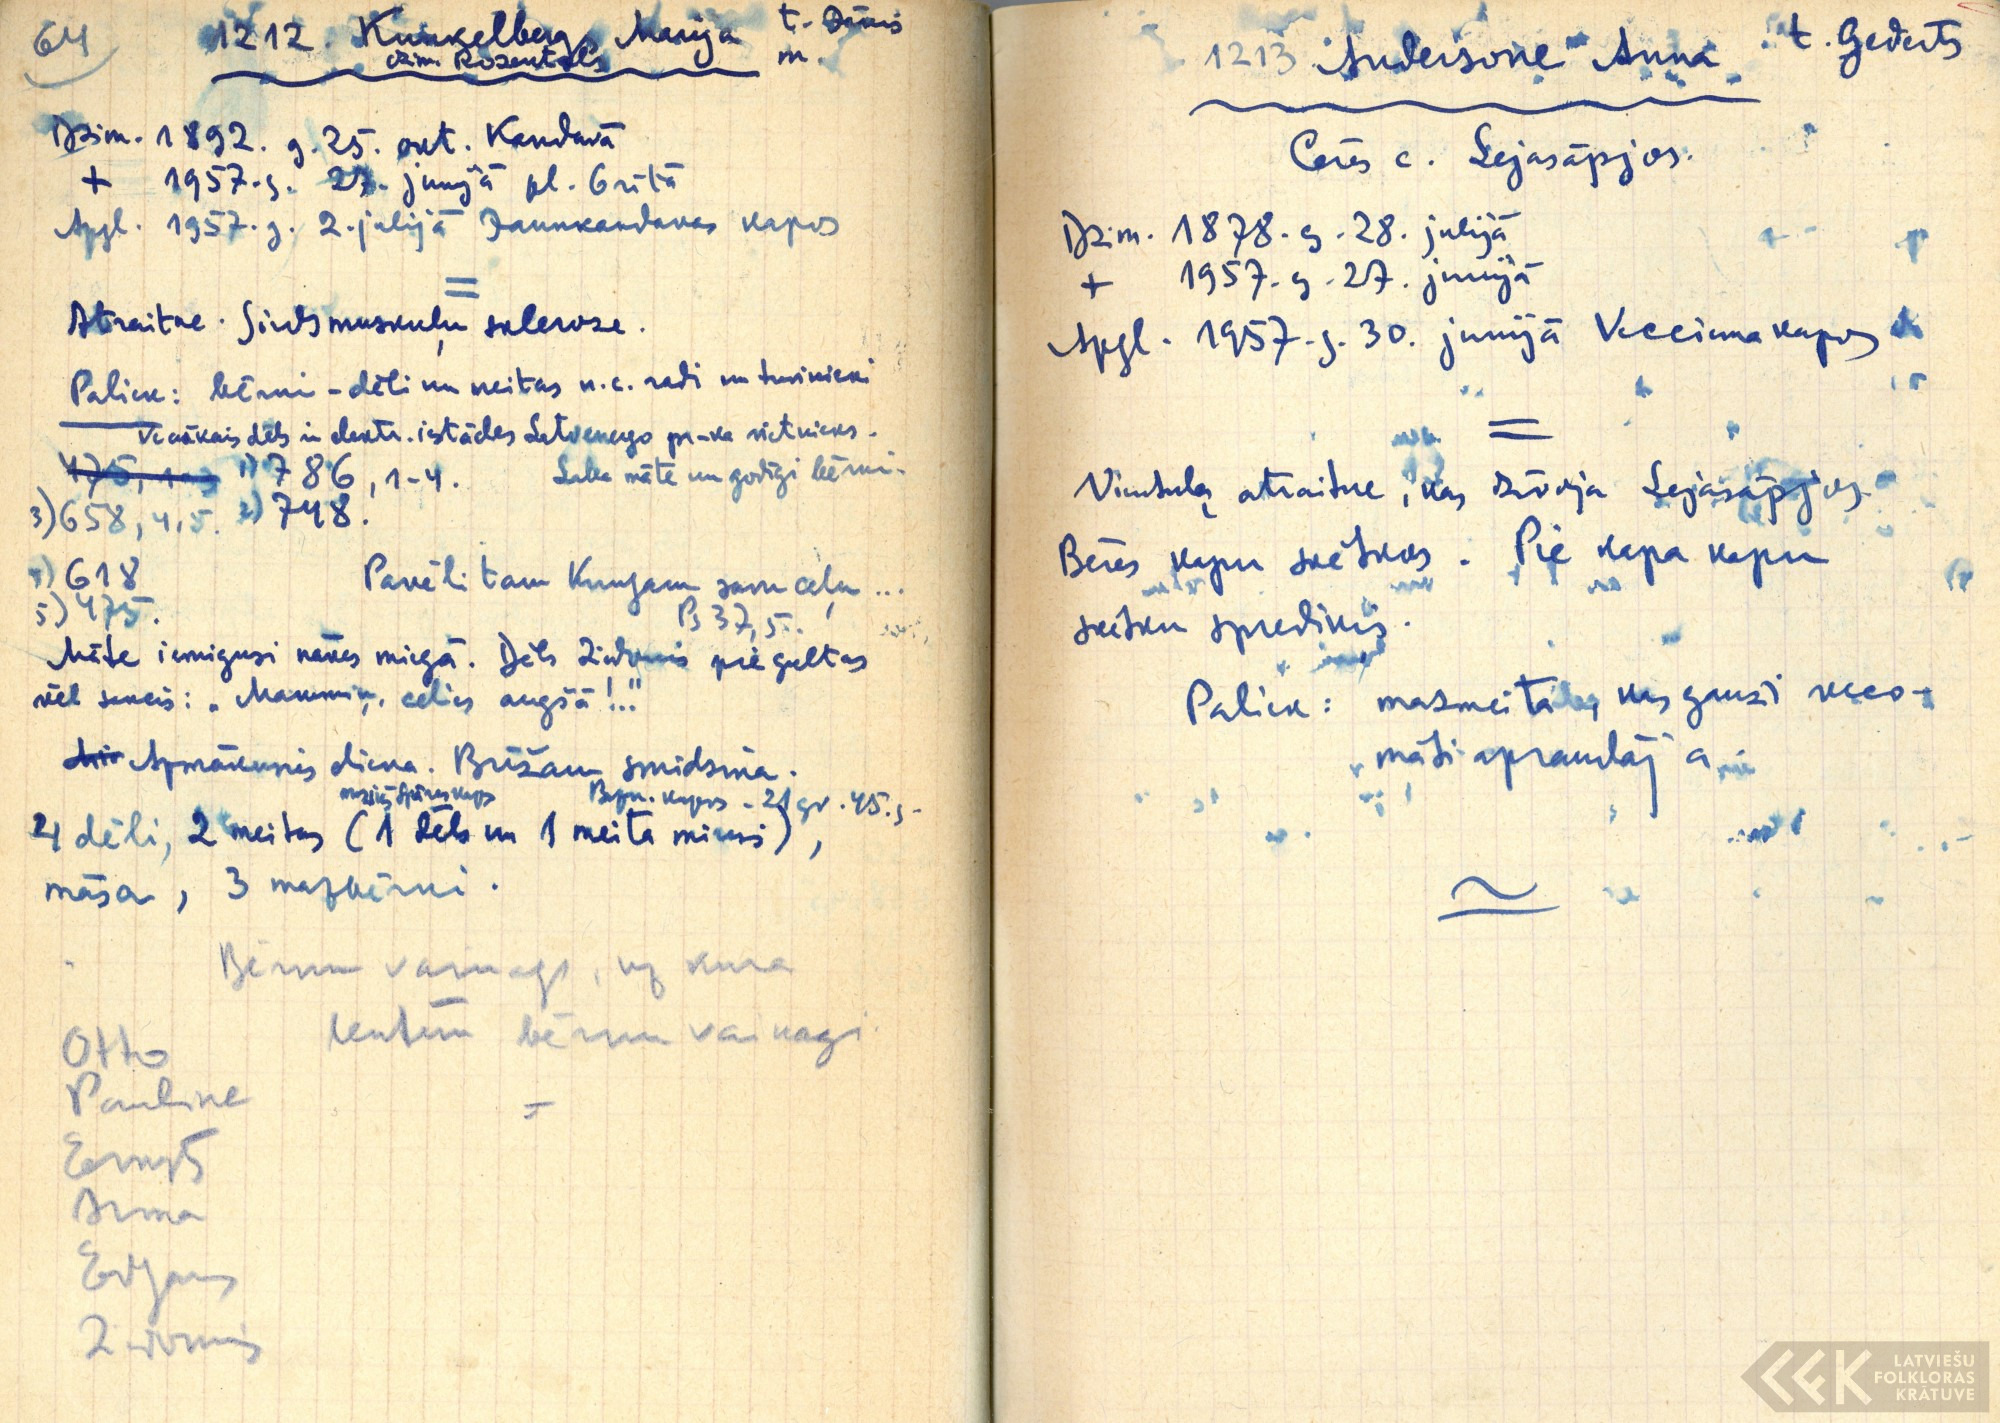 64
1212. Kunkelbergs Marija t. Dāvis
dzim. Rozentāls m.
Dzim. 1892. g. 25. okt. Kandavā
+ 1957. g. 27. junijā pl. 6 rītā
Apgl. 1957. g. 2. julijā Jaunkandavas kapos
=
Atraitne. Sirds muskuļu skleroze.
Paliek: bērni - dēli un meitas u.c. radi un tuvinieki
Vecākais dēls ir elektr. iestādes Latvenergo pr-ka vietnieks.
475, 1-3 1) 786, 1-4. Laba māte un godīgi bērni.
3) 658, 4,5. 2) 748.
4) 618 Pavēli tam Kungam savu ceļu ...
5) 475. Ps 37,5.
Māte iemigusi nāves miegā. Dēls Ziedonis piegultas
vēl saucis: "Mammiņ, celies augšā!.."
Apmākusies diena. Brīžam smidzina.
kapos - 21 gr. 45. g.
4 dēli, 2 meitas (1 dēls un 1 meita miruši),
māsa, 3 mazbērni.
Bērnu vainags, uz kura
lentēm bērnu vainagi
=
Otto
Pauline
Ernests
Arma
Edgars
Ziedonis
1213. Andersone Anna t. Ģederts
Cēres c. Lejasāpjos.
Dzim. 1878. g. 28. julijā
+ 1957. g. 27. junijā
Apgl. 1957. g. 30. junijā Vecciema kapos
=
Vientuļa atraitne, kas dzīvoja Lejasāpjos.
Bēres kapu svētkos. Pie kapa kapu
svētku sprediķis.
Paliek: mazmeita, kas gauži veco-
māti apraudāja.
LATVIEŠU
FOLKLORAS
KRĀTUVE